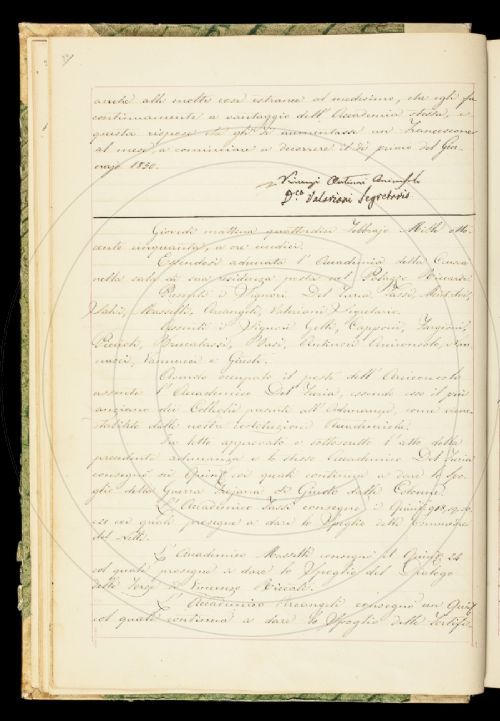 anche alle molte cose estranee al medesimo, che egli fa
continuamente a vantaggio dell'Accademia stessa, e
questa rispose che gli si aumentasse un Francescone
al mese a cominciare a decorrere dì primo del Gen-
najo 1850.
Vincenzio Antinori Arciconsolo
D.co Valeriani Segretario
Giovedì mattina quattordici Febbrajo Mille otto-
cento cinquanta, a ore undici.
Essendosi adunata l'Accademia della Crusca
nella sala di sua residenza posta nel Palazzo Riccardi
Presenti i Signori Del Furia, Tassi,
Salvi, Masselli, Arcangeli, Valeriani Segretario.
Assenti i Signori Gelli, Capponi, Targioni,
Becchi, Brucalassi, Antinori Arciconsolo,
Vannucci e
Avendo occupato il posto dell'Arciconsolo
assente l'Accademico Del Furia, essendo esso il più
anziano dei Colleghi presenti all'Adunanza, come vien
stabilito dalle nostre Costituzioni Accademiche.
Fu letto approvato e sottoscritto l'atto della
precedente adunanza e lo stesso Accademico Del Furia
consegnò coi quali continua a dare lo Spo-
glio della Guerra Trojana di Guido dalle Colonne.
L'Accademico Tassi consegnò i
coi quali prosegue a dare lo Spoglio delle
del
L'Accademico Masselli consegnò il 22
col quale prosegue a dare lo Spoglio del Dialogo
delle Vincenzo Riccati.
L'Accademico Arcangeli consegnò un
col quale continua a dare lo Spoglio delle